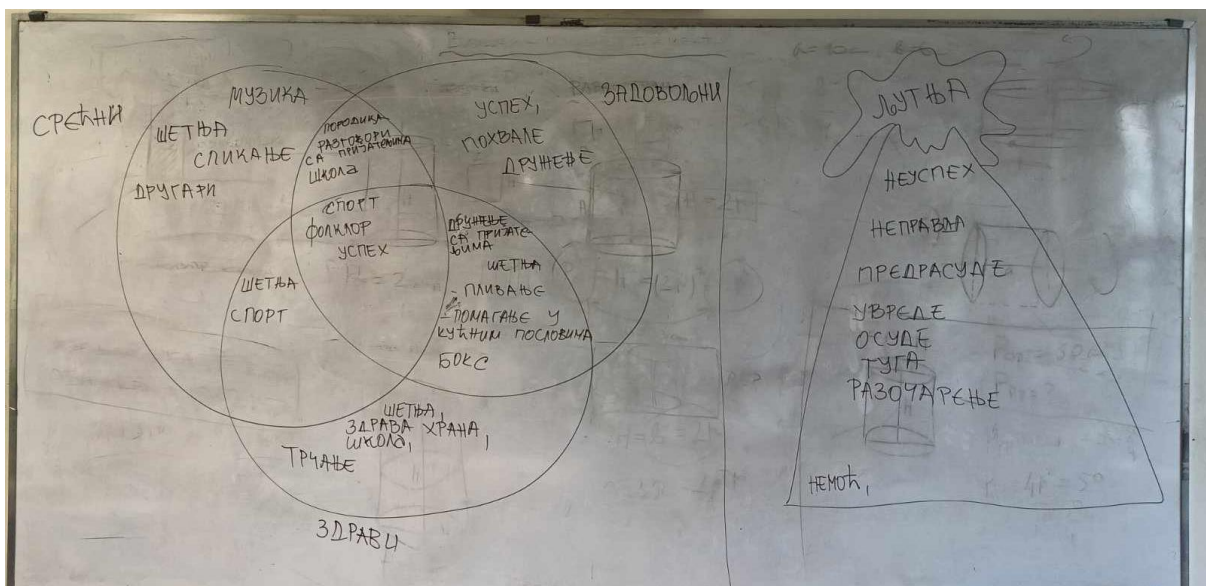 СРЕЋНИ
МУЗИКА
ШЕТЊА
СЛИКАЊЕ
ДРУГАРИ
ПОРОДИЦА
РАЗГОВОРИ
СА ПРИЈАТЕЉИМА
ШКОЛА
ЗАДОВОЉНИ
УСПЕХ,
ПОХВАЛЕ
ДРУЖЕЊЕ
СПОРТ
ФОЛКЛОР
УСПЕХ
ДРУЖЕЊЕ
СА ПРИЈАТЕ
ЉИМА
ШЕТЊА
- ПЛИВАЊЕ
- ПОМАГАЊЕ У
КУЋНИМ ПОСЛОВИМА
БОКС
ШЕТЊА
СПОРТ
ШЕТЊА,
ЗДРАВА ХРАНА,
ШКОЛА,
ТРЧАЊЕ
ЗДРАВИ
ЉУТЊА
НЕУСПЕХ
НЕПРАВДА
ПРЕДРАСУДЕ
УВРЕДЕ
ОСУДЕ
ТУГА
РАЗОЧАРЕЊЕ
НЕМОЋ,